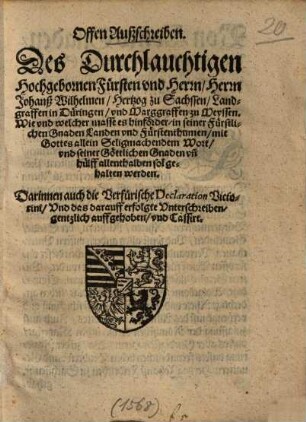 20
Offen Außschreiben.
Des Durchlauchtigen
Hochgebornen Fürsten vnd Herrn/Herrn
Johanß Wilhelmen/Hertzog zu Sachssen/Land-
graffen in Düringen/vnd Marggraffen zu Meyssen.
Wie vnd welcher masse es hinfüder/in seiner Fürstli-
chen Gnaden Landen vnd Fürstenthumen/mit
Gottes allein Seligmachendem Wort/
vnd seiner Göttlichen Gnaden vñ
hülff allenthalben sol ge-
halten werden.
Darinnen auch die Verfürische Declaration Victo-
rini/Vnd das darauff erfolgte Vnterschreiben-
gentzlich auffgehoben/vnd Cassirt.
(1568)